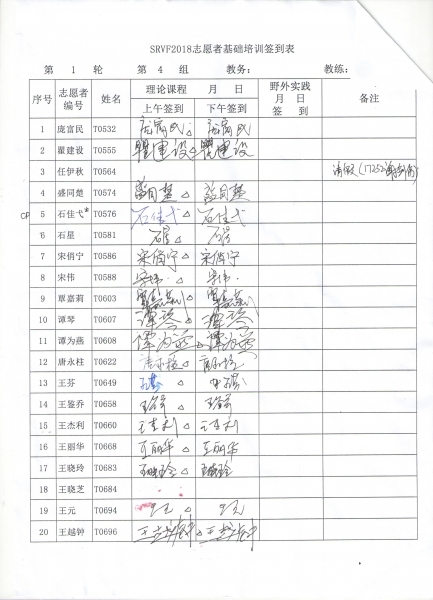 SRVF2018志愿者基础培训签到表
第 1 轮 第 4 组 教务： 教练：
序号 志愿者编号 姓名 理论课程 月 日 上午签到 下午签到 野外实践 月 日 签 到 备注
1 庞富民 T0532 庞富民 庞富民
2 瞿建设 T0555 瞿建设 瞿建设
3 任伊秋 T0564 请假
4 盛同楚 T0574 盛同楚 盛同楚
CP 5 石佳弋* T0576 石佳弋 石佳弋
6 石星 T0581 石星 石星
7 宋俏宁 T0586 宋俏宁 宋俏宁
8 宋伟 T0588 宋伟 宋伟
9 覃嘉莉 T0603 覃嘉莉 覃嘉莉
10 谭琴 T0607 谭琴 谭琴
11 谭为燕 T0608 谭为燕 谭为燕
12 唐永柱 T0622 唐永柱 唐永柱
13 王芬 T0649 王芬 王芬
14 王鉴乔 T0658
15 王杰利 T0660 王杰利 王杰利
16 王丽华 T0668 王丽华 王丽华
17 王晓玲 T0683 王晓玲 王晓玲
18 王晓芝 T0684
19 王元 T0694 王元 王元
20 王越钟 T0696